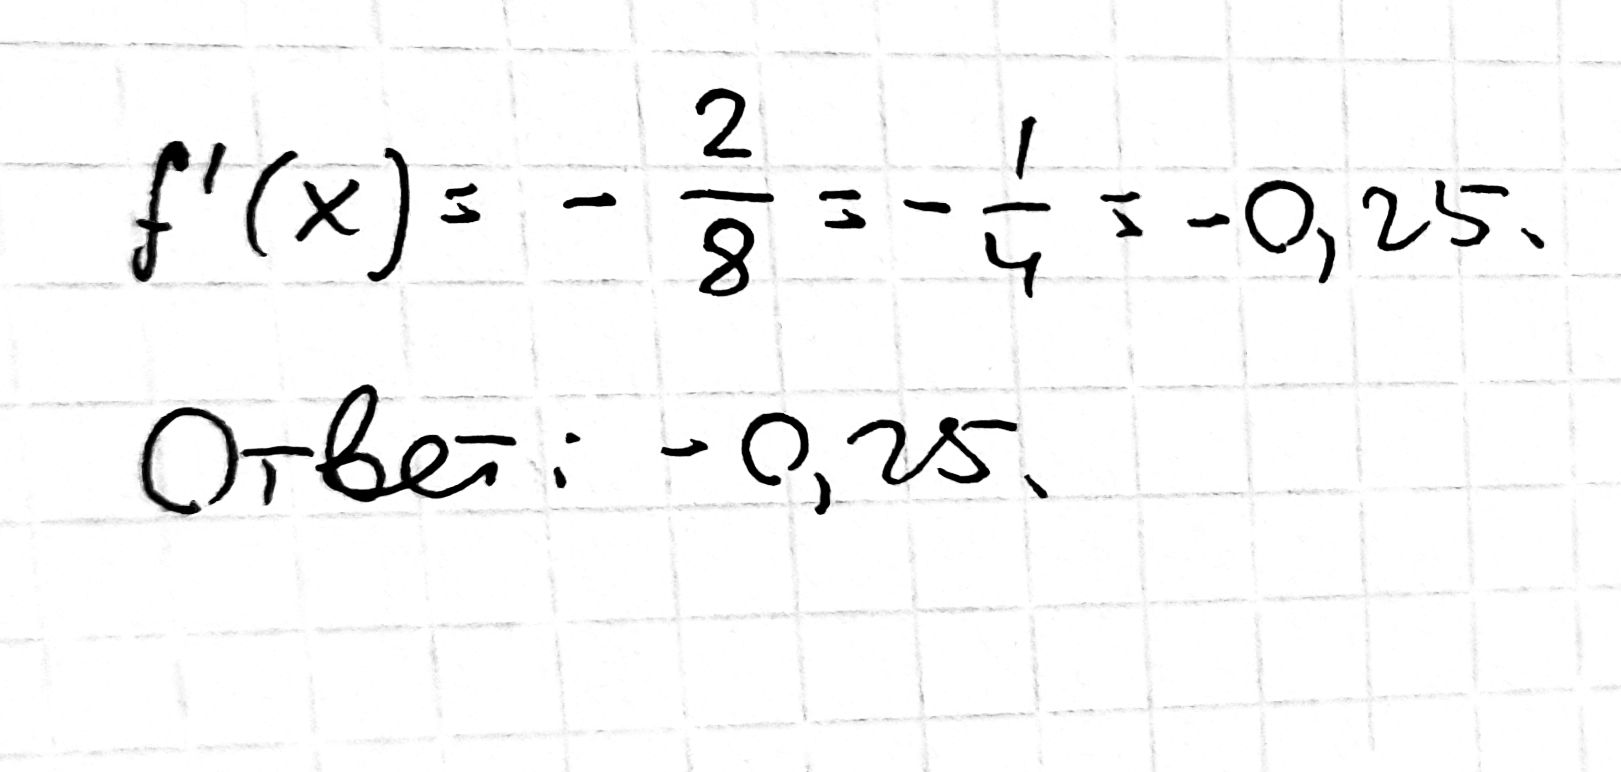 f'(x) = - 2/8 = - 1/4 = -0,25.
Ответ: -0,25.